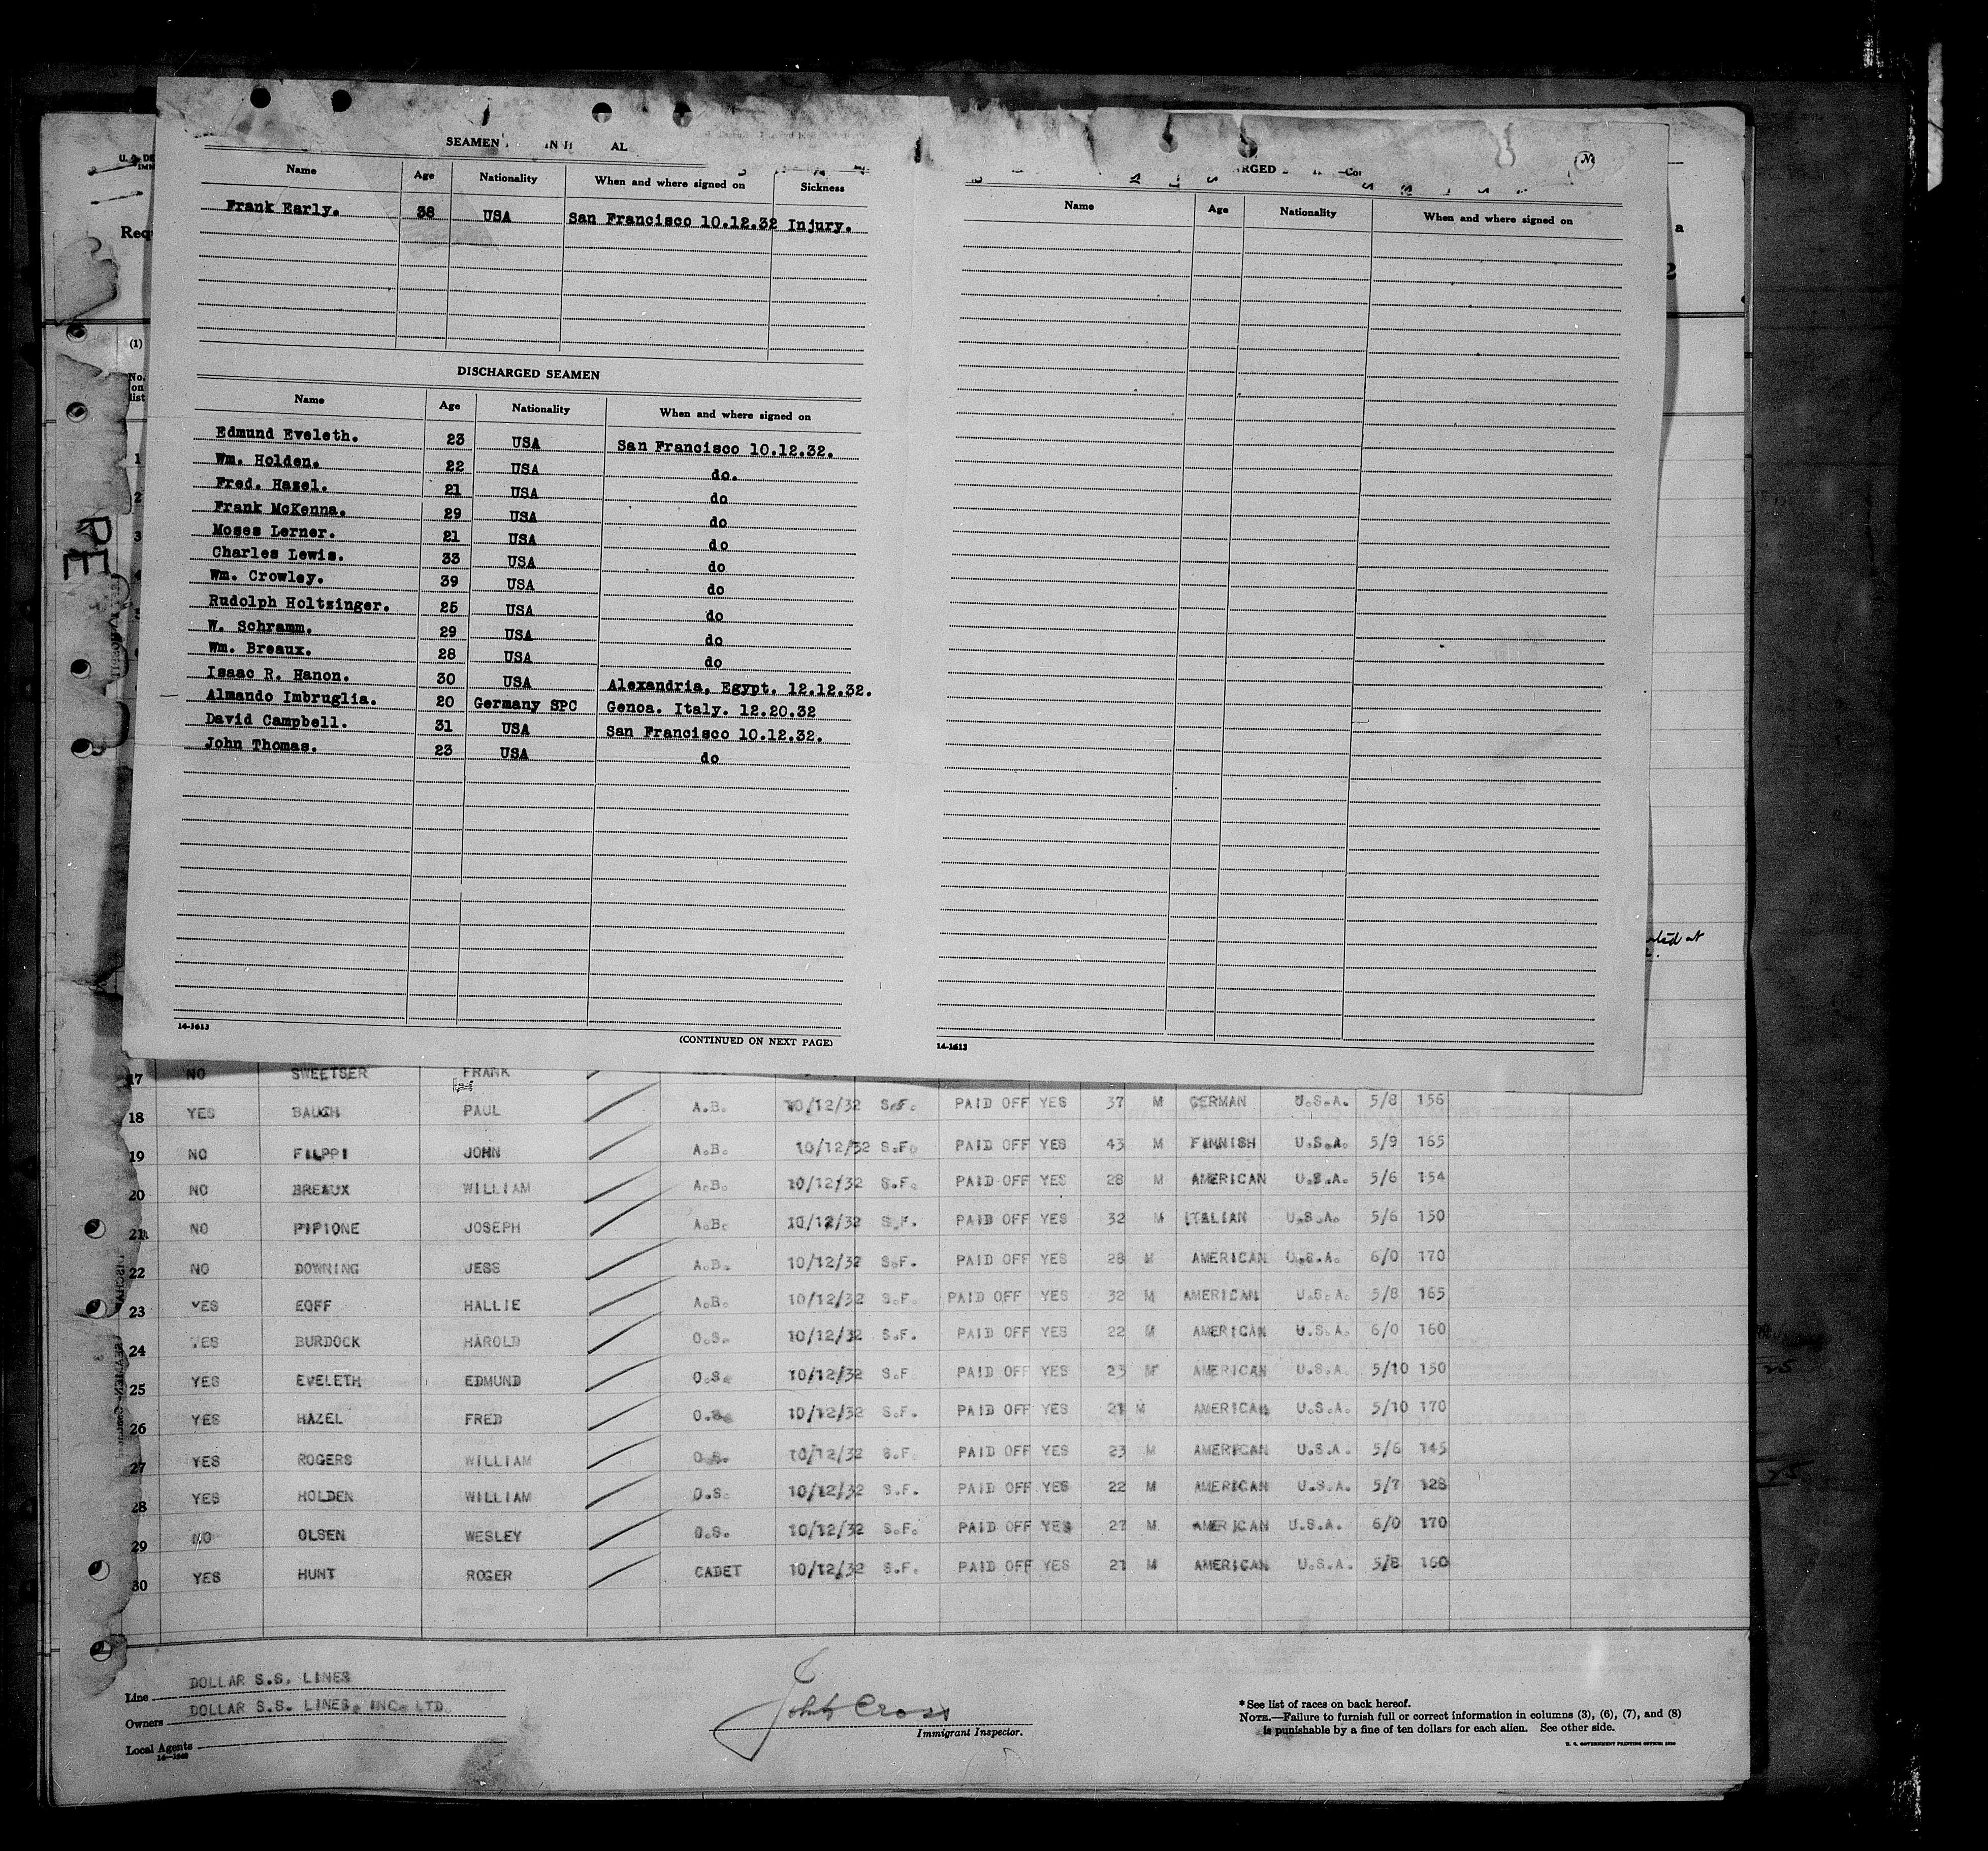 SEAMEN IN H AL
Name Age Nationality When and where signed on Sickness
Frank Early. 38 USA San Francisco 10.12.32 Injury.
DISCHARGED SEAMEN
Name Age Nationality When and where signed on
Edmund Eveleth. 23 USA San Francisco 10.12.32.
Wm. Holden. 22 USA do.
Fred. Hazel. 21 USA do
Frank McKenna. 29 USA do
Moses Lerner. 21 USA do
Charles Lewis. 33 USA do
Wm. Crowley. 39 USA do
Rudolph Holtzinger. 25 USA do
W. Schramm. 29 USA do
Wm. Breaux. 28 USA do
Isaac R. Hanon. 30 USA Alexandria, Egypt. 12.12.32.
Almando Imbruglia. 20 Germany SPC Genoa. Italy. 12.20.32
David Campbell. 31 USA San Francisco 10.12.32.
John Thomas. 23 USA do
14-1613
(CONTINUED ON NEXT PAGE)
RGED
Name Age Nationality When and where signed on
14-1613
U. S. DE
IMM
Req
(1)
No.
on
list
1
2
3
RE
17 NO SWEETSER FRANK
18 YES BAUGH PAUL A.B. 10/12/32 S.F. PAID OFF YES 37 M GERMAN U.S.A. 5/8 156
19 NO FILPPI JOHN A.B. 10/12/32 S.F. PAID OFF YES 43 M FINNISH U.S.A. 5/9 165
20 NO BREAUX WILLIAM A.B. 10/12/32 S.F. PAID OFF YES 28 M AMERICAN U.S.A. 5/6 154
21 NO PIPIONE JOSEPH A.B. 10/12/32 S.F. PAID OFF YES 32 M ITALIAN U.S.A. 5/6 150
22 NO DOWNING JESS A.B. 10/12/32 S.F. PAID OFF YES 28 M AMERICAN U.S.A. 6/0 170
23 YES EOFF HALLIE A.B. 10/12/32 S.F. PAID OFF YES 32 M AMERICAN U.S.A. 5/8 165
24 YES BURDOCK HAROLD O.S. 10/12/32 S.F. PAID OFF YES 22 M AMERICAN U.S.A. 6/0 160
25 YES EVELETH EDMUND O.S. 10/12/32 S.F. PAID OFF YES 23 M AMERICAN U.S.A. 5/10 150
26 YES HAZEL FRED O.S. 10/12/32 S.F. PAID OFF YES 21 M AMERICAN U.S.A. 5/10 170
27 YES ROGERS WILLIAM O.S. 10/12/32 S.F. PAID OFF YES 23 M AMERICAN U.S.A. 5/6 145
28 YES HOLDEN WILLIAM O.S. 10/12/32 S.F. PAID OFF YES 22 M AMERICAN U.S.A. 5/7 128
29 NO OLSEN WESLEY O.S. 10/12/32 S.F. PAID OFF YES 27 M AMERICAN U.S.A. 6/0 170
30 YES HUNT ROGER CADET 10/12/32 S.F. PAID OFF YES 21 M AMERICAN U.S.A. 5/8 160
Line DOLLAR S.S. LINES
Owners DOLLAR S.S. LINES, INC. LTD.
Local Agents
John Cross
Immigrant Inspector.
* See list of races on back hereof.
NOTE.—Failure to furnish full or correct information in columns (3), (6), (7), and (8)
is punishable by a fine of ten dollars for each alien. See other side.